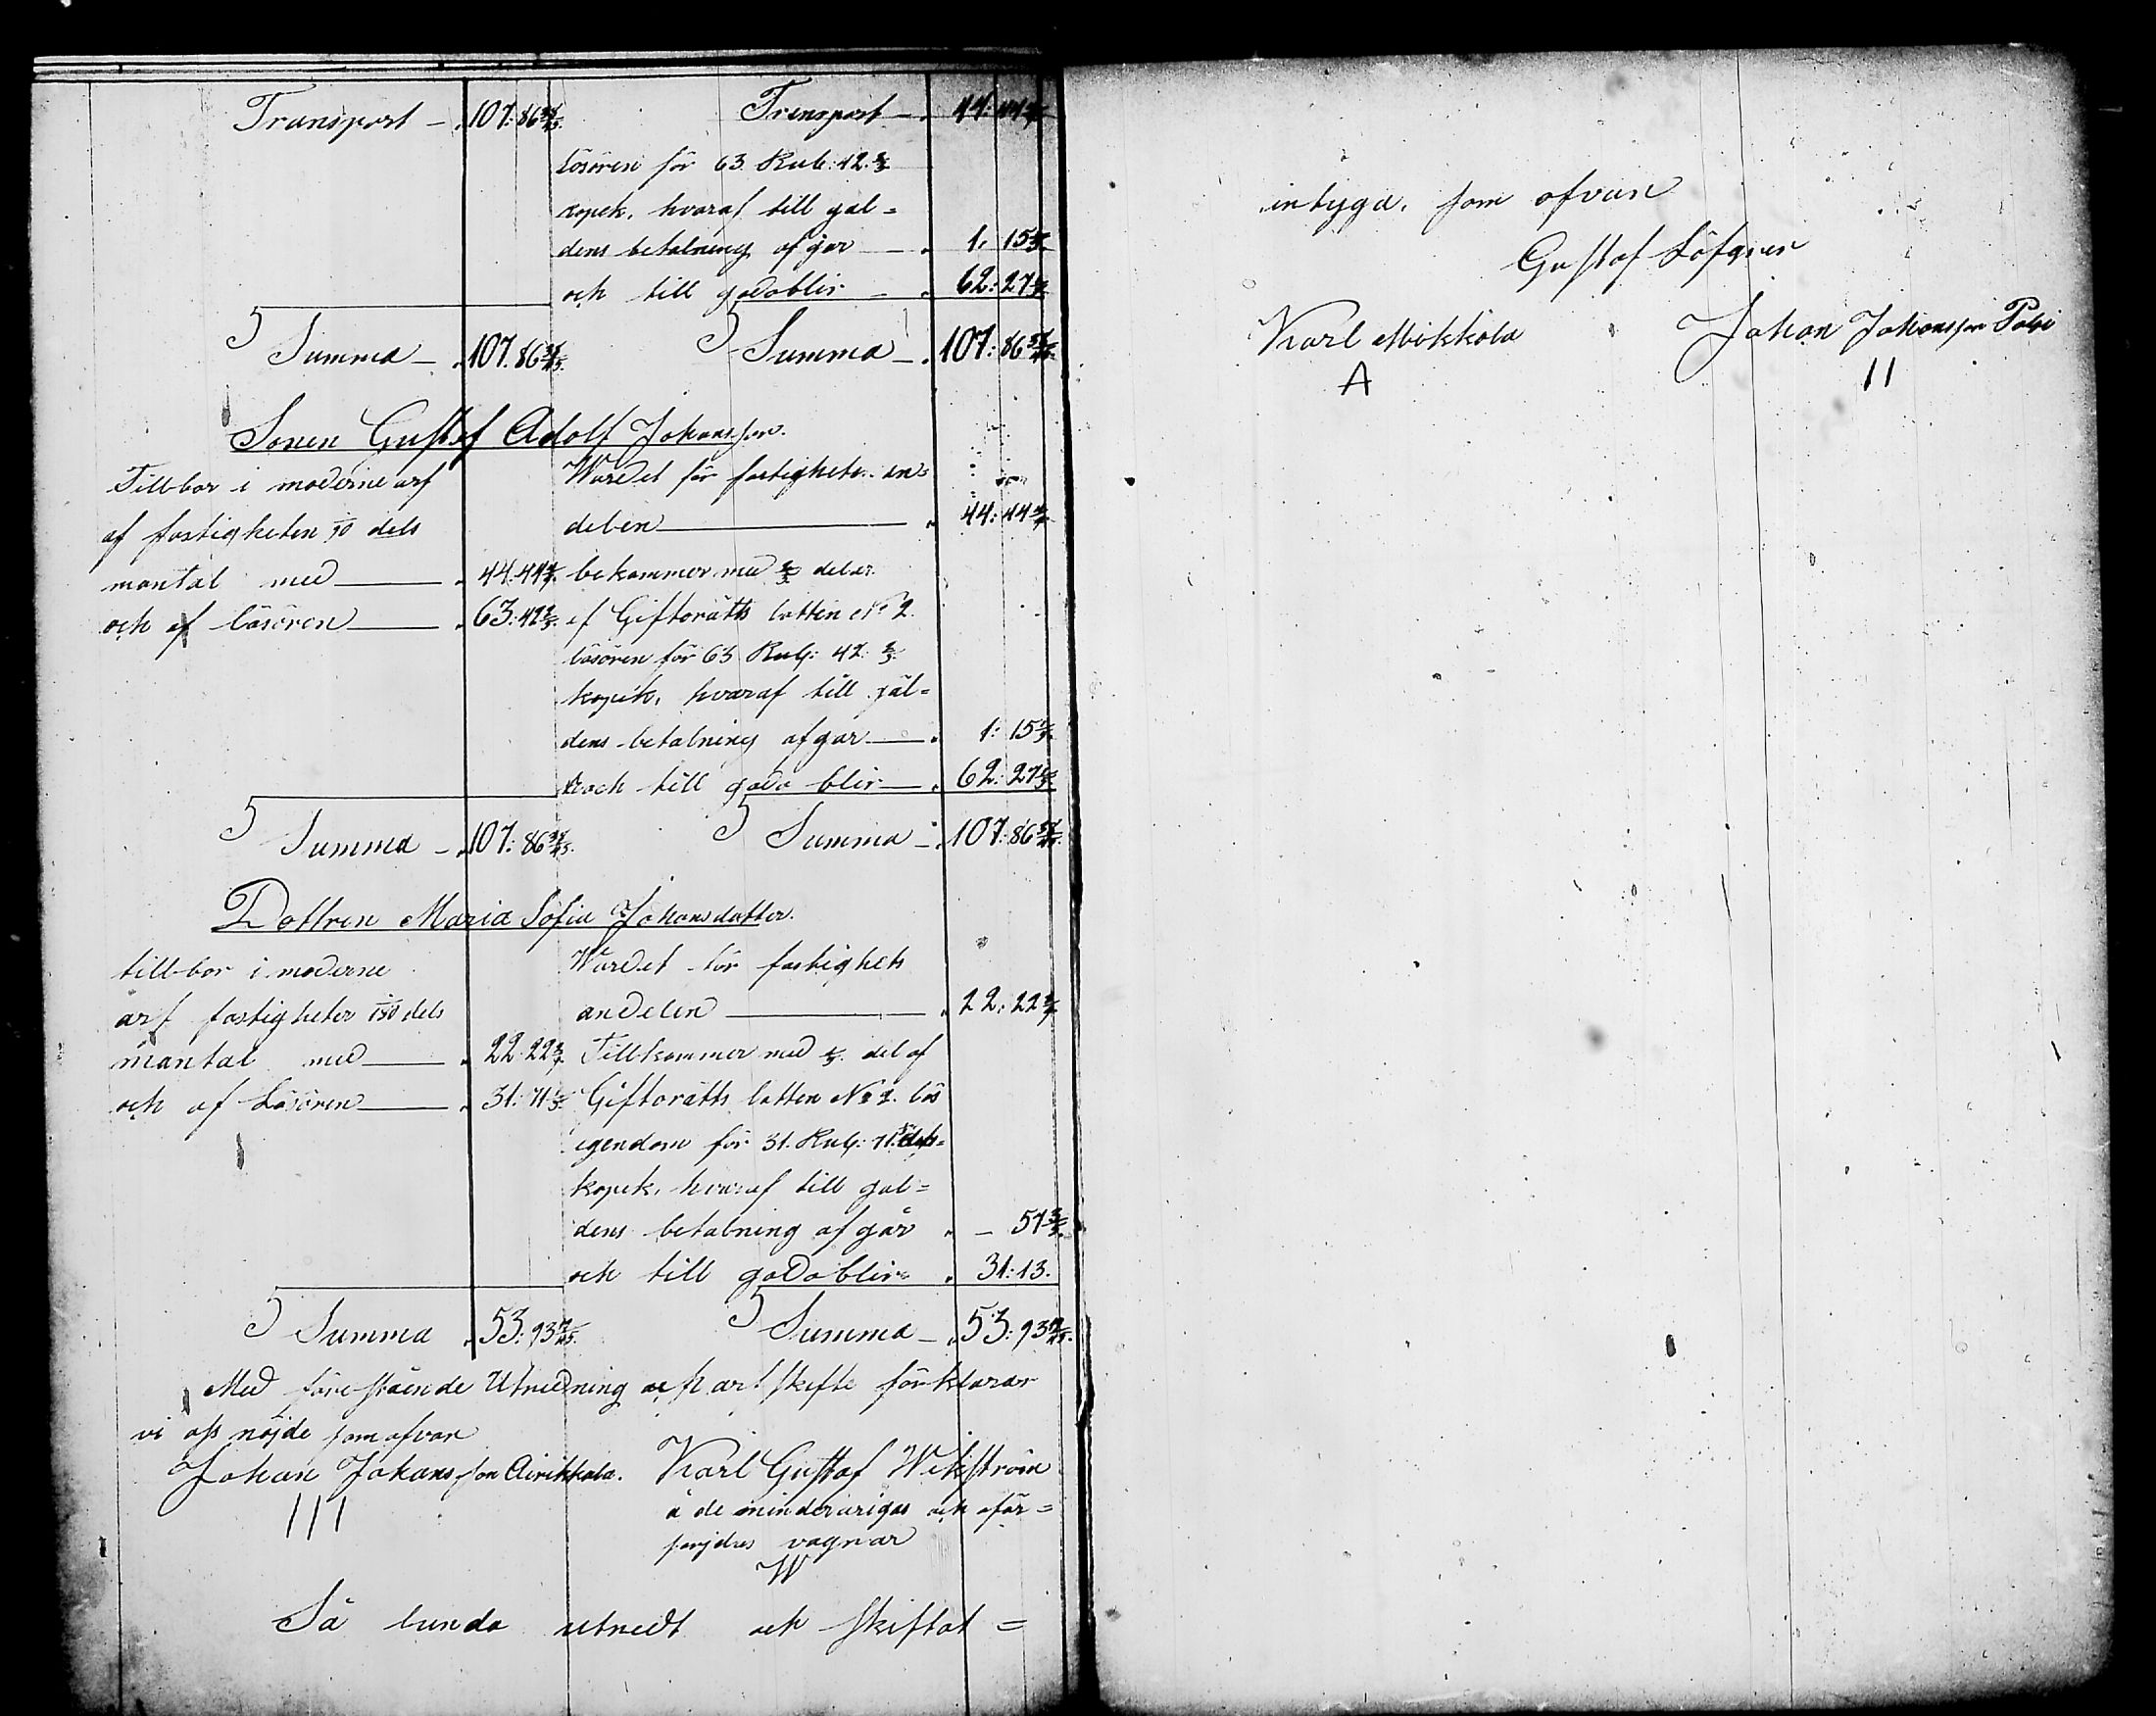 Transport — 107: 86 34/45.
Transport — 44: 44 4/9
lösören för 63 Rub: 42 2/5
kopek, hvaraf till gäl=
dens betalning afgår — 1. 15
och till godo blir — 62: 27
Summa — 107. 86 34/45.
Summa — 107: 86 34/45.
Sonen Gustaf Adolf Johansson.
Tillhör i möderne arf
af fastigheten dels
mantal med — 44. 44 4/9.
och af lösören — 63: 42 2/5.
Wärdet för fastighets an=
delen — 44: 44 4/9
bekommer med 2/5 delar
af Giftorätts lotten No 2.
lösören för 63 Rub: 42 2/5
kopek, hvaraf till gäl=
dens betalning afgår — 1: 15
och till godo blir — 62: 27
Summa — 107: 86 34/45.
Summa — 107: 86 34/45.
Dottren Maria Sofia Johansdotter.
tillhör i möderne
arf fastigheten dels
mantal med — 22: 22 2/9
och af Lösören — 31: 71 1/5
Wärdet för fastighets
andelen — 22: 22 2/9
Tillkommer med 1/5 del af
Giftorätts lotten No 2. lös
egendom för 31. Rub: 71
kopek, hvaraf till gäl=
dens betalning afgår — 57
och till godo blir 31: 13.
Summa 53: 93 17/45.
Summa — 53: 93 17/45.
Med föreståënde Utredning och arfskifte förklarar
vi oss nöjde som ofvan
Johan Johansson Airikkala. Karl Gustaf Wikström
III
å de minderårigas och oför=
sörjdes vägnar
W
Så lunda utredt och skiftat =
intyga, som ofvan
Gustaf Löfgren
Karl Mikkola Johan Johansson
A II